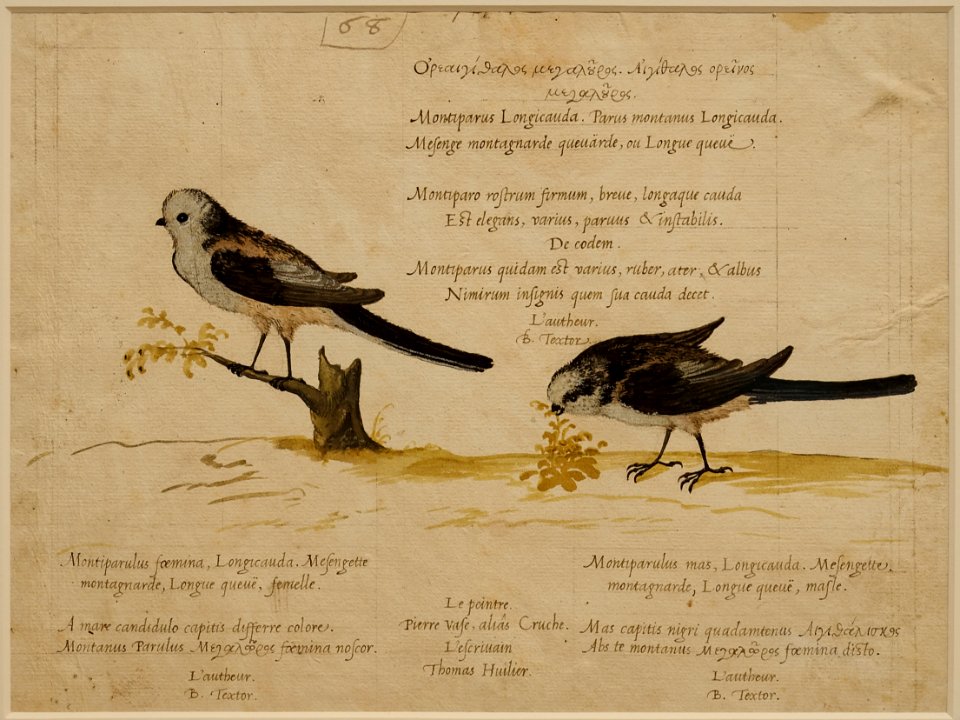 68
Ορεαιγίθαλος μεγαλȣ͂ρος. Αιγίθαλος ορεῖνος
μεγαλȣ͂ρος.
Montiparus Longicauda. Parus montanus Longicauda.
Meſenge montagnarde queuärde, ou Longue queuë.
Montiparo roſtrum firmum, breue, longaque cauda
Est elegans, varius, paruus & inſtabilis.
De eodem.
Montiparus quidam est varius, ruber, ater, & albus
Nimirum inſignis quem ſua cauda decet.
L'autheur.
B. Textor.
Montiparulus fœmina, Longicauda. Meſengette
montagnarde, Longue queuë, femelle.
A mare candidulo capitis differre colore.
Montanus Parulus Μεγαλȣ͂ρος fœmina noſcor.
L'autheur.
B. Textor.
Le peintre.
Pierre vaſe, aliâs Cruche.
L'eſcriuain
Thomas Huilier.
Montiparulus mas, Longicauda. Meſengette,
montagnarde, Longue queuë, maſle.
Mas capitis nigri quadamtenus Αιγιθάλισκος
Abs te montanus Μεγαλȣ͂ρος fœmina diſto.
L'autheur.
B. Textor.